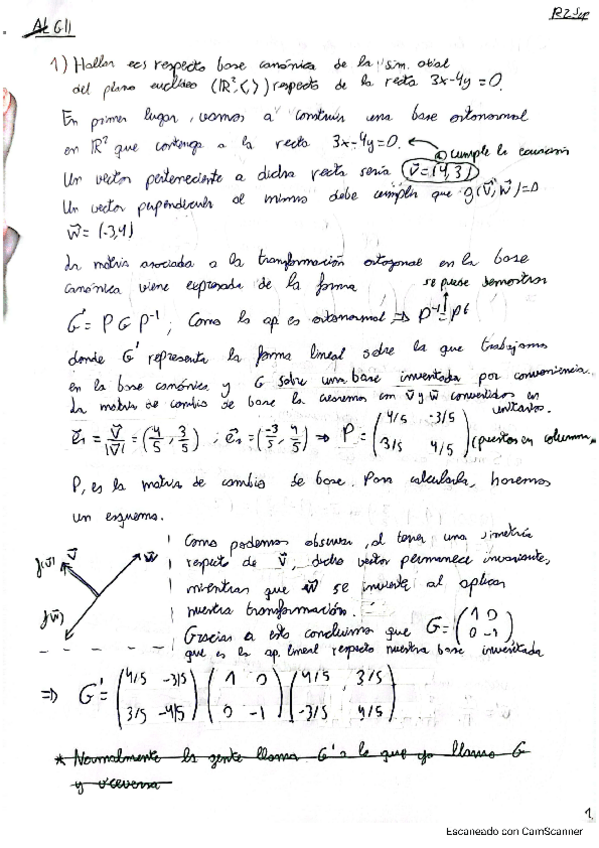 ALGII
R2 Sep
1) Hallar ecs respecto base canónica de la sim. otal
del plano euclídeo (ℝ², <,>) respecto de la recta 3x-4y=0.
En primer lugar, vamos a construir una base ortonormal
en ℝ² que contenga a la recta 3x-4y=0.
cumple la ecuación
Un vector perteneciente a dicha recta sería v⃗=(4,3)
Un vector perpendicular al mismo debe cumplir que g(v⃗,w⃗)=0
w⃗=(-3,4)
La matriz asociada a la transformación ortogonal en la base
canónica viene expresada de la forma
se puede demostrar
G'= P G P⁻¹ ; Como la ap es ortonormal ⇒ P⁻¹=Pᵗ
donde G' representa la forma lineal sobre la que trabajamos
en la base canónica y G sobre una base inventada por conveniencia.
La matriz de cambio de base la creamos con v⃗ y w⃗ convertidos en
unitarios.
e⃗₁ = v⃗/|v⃗| = (4/5, 3/5) ; e⃗₁ = (-3/5, 4/5) ⇒ P = (4/5 -3/5
3/5 4/5) (puestos en columna)
P, es la matriz de cambio de base. Para calcularla, haremos
un esquema.
f(v⃗) v⃗ w⃗
f(w⃗)
Como podemos observar, al tener una simetría
respecto de v⃗, dicho vector permanece invariante,
mientras que w⃗ se invierte al aplicar
nuestra transformación.
Gracias a esto concluimos que G=(1 0
0 -1)
que es la ap. lineal respecto nuestra base inventada
⇒ G' = (4/5 -3/5 (1 0 (4/5 3/5
3/5 -4/5) 0 -1) -3/5 4/5)
* Normalmente la gente llama G' a lo que yo llamo G
y viceversa
1
Escaneado con CamScanner